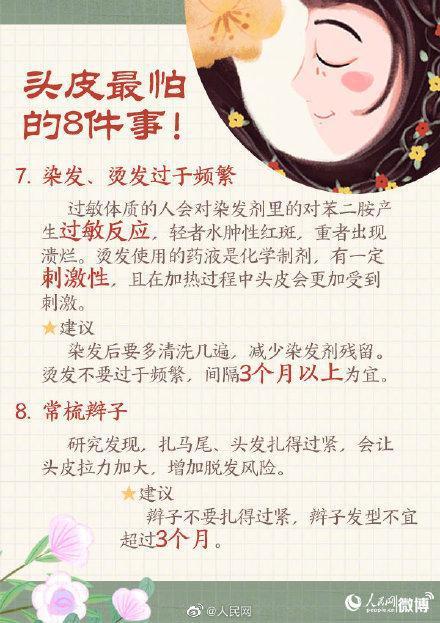 头皮最怕
的8件事！
7. 染发、烫发过于频繁
过敏体质的人会对染发剂里的对苯二胺产
生过敏反应，轻者水肿性红斑，重者出现
溃烂。烫发使用的药液是化学制剂，有一定
刺激性，且在加热过程中头皮会更加受到
刺激。
★建议
染发后要多清洗几遍，减少染发剂残留。
烫发不要过于频繁，间隔3个月以上为宜。
8. 常梳辫子
研究发现，扎马尾、头发扎得过紧，会让
头皮拉力加大，增加脱发风险。
★建议
辫子不要扎得过紧，辫子发型不宜
超过3个月。
@人民网
人民网 微博
people.cn